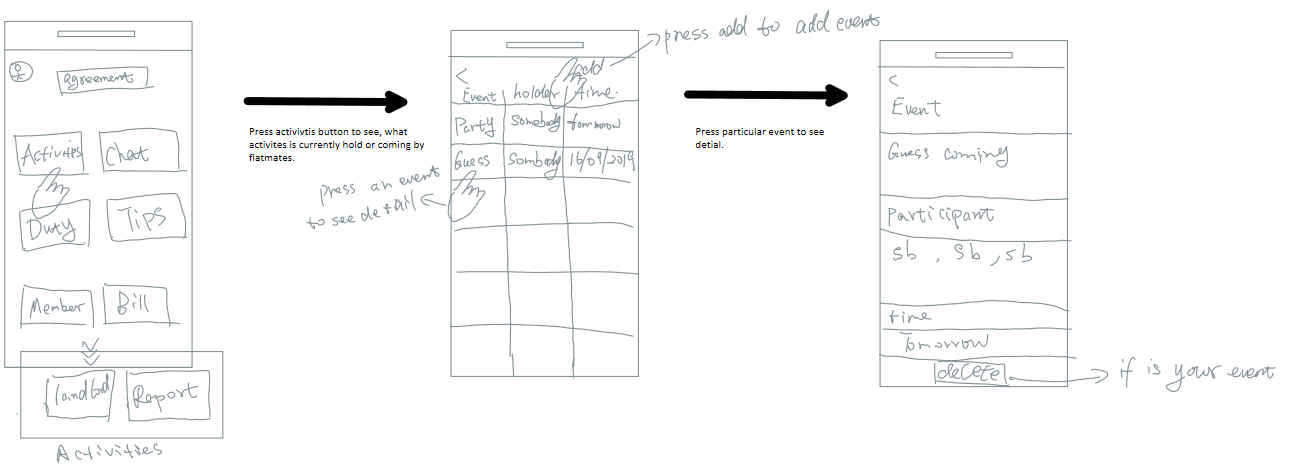 agreement
Activities
Chat
Duty
Tips
Member
Bill
landlord
Report
Activities
Press activivtis button to see, what
activites is currently hold or coming by
flatmates.
press add to add event
Add
<
Event holder time.
Party Somebody tomorrow
Guess Sombody 16/09/2019
press an event
to see detail
Press particular event to see
detial.
<
Event
Guess coming
participant
sb , sb , sb
time
Tomorrow
delete
if is your event